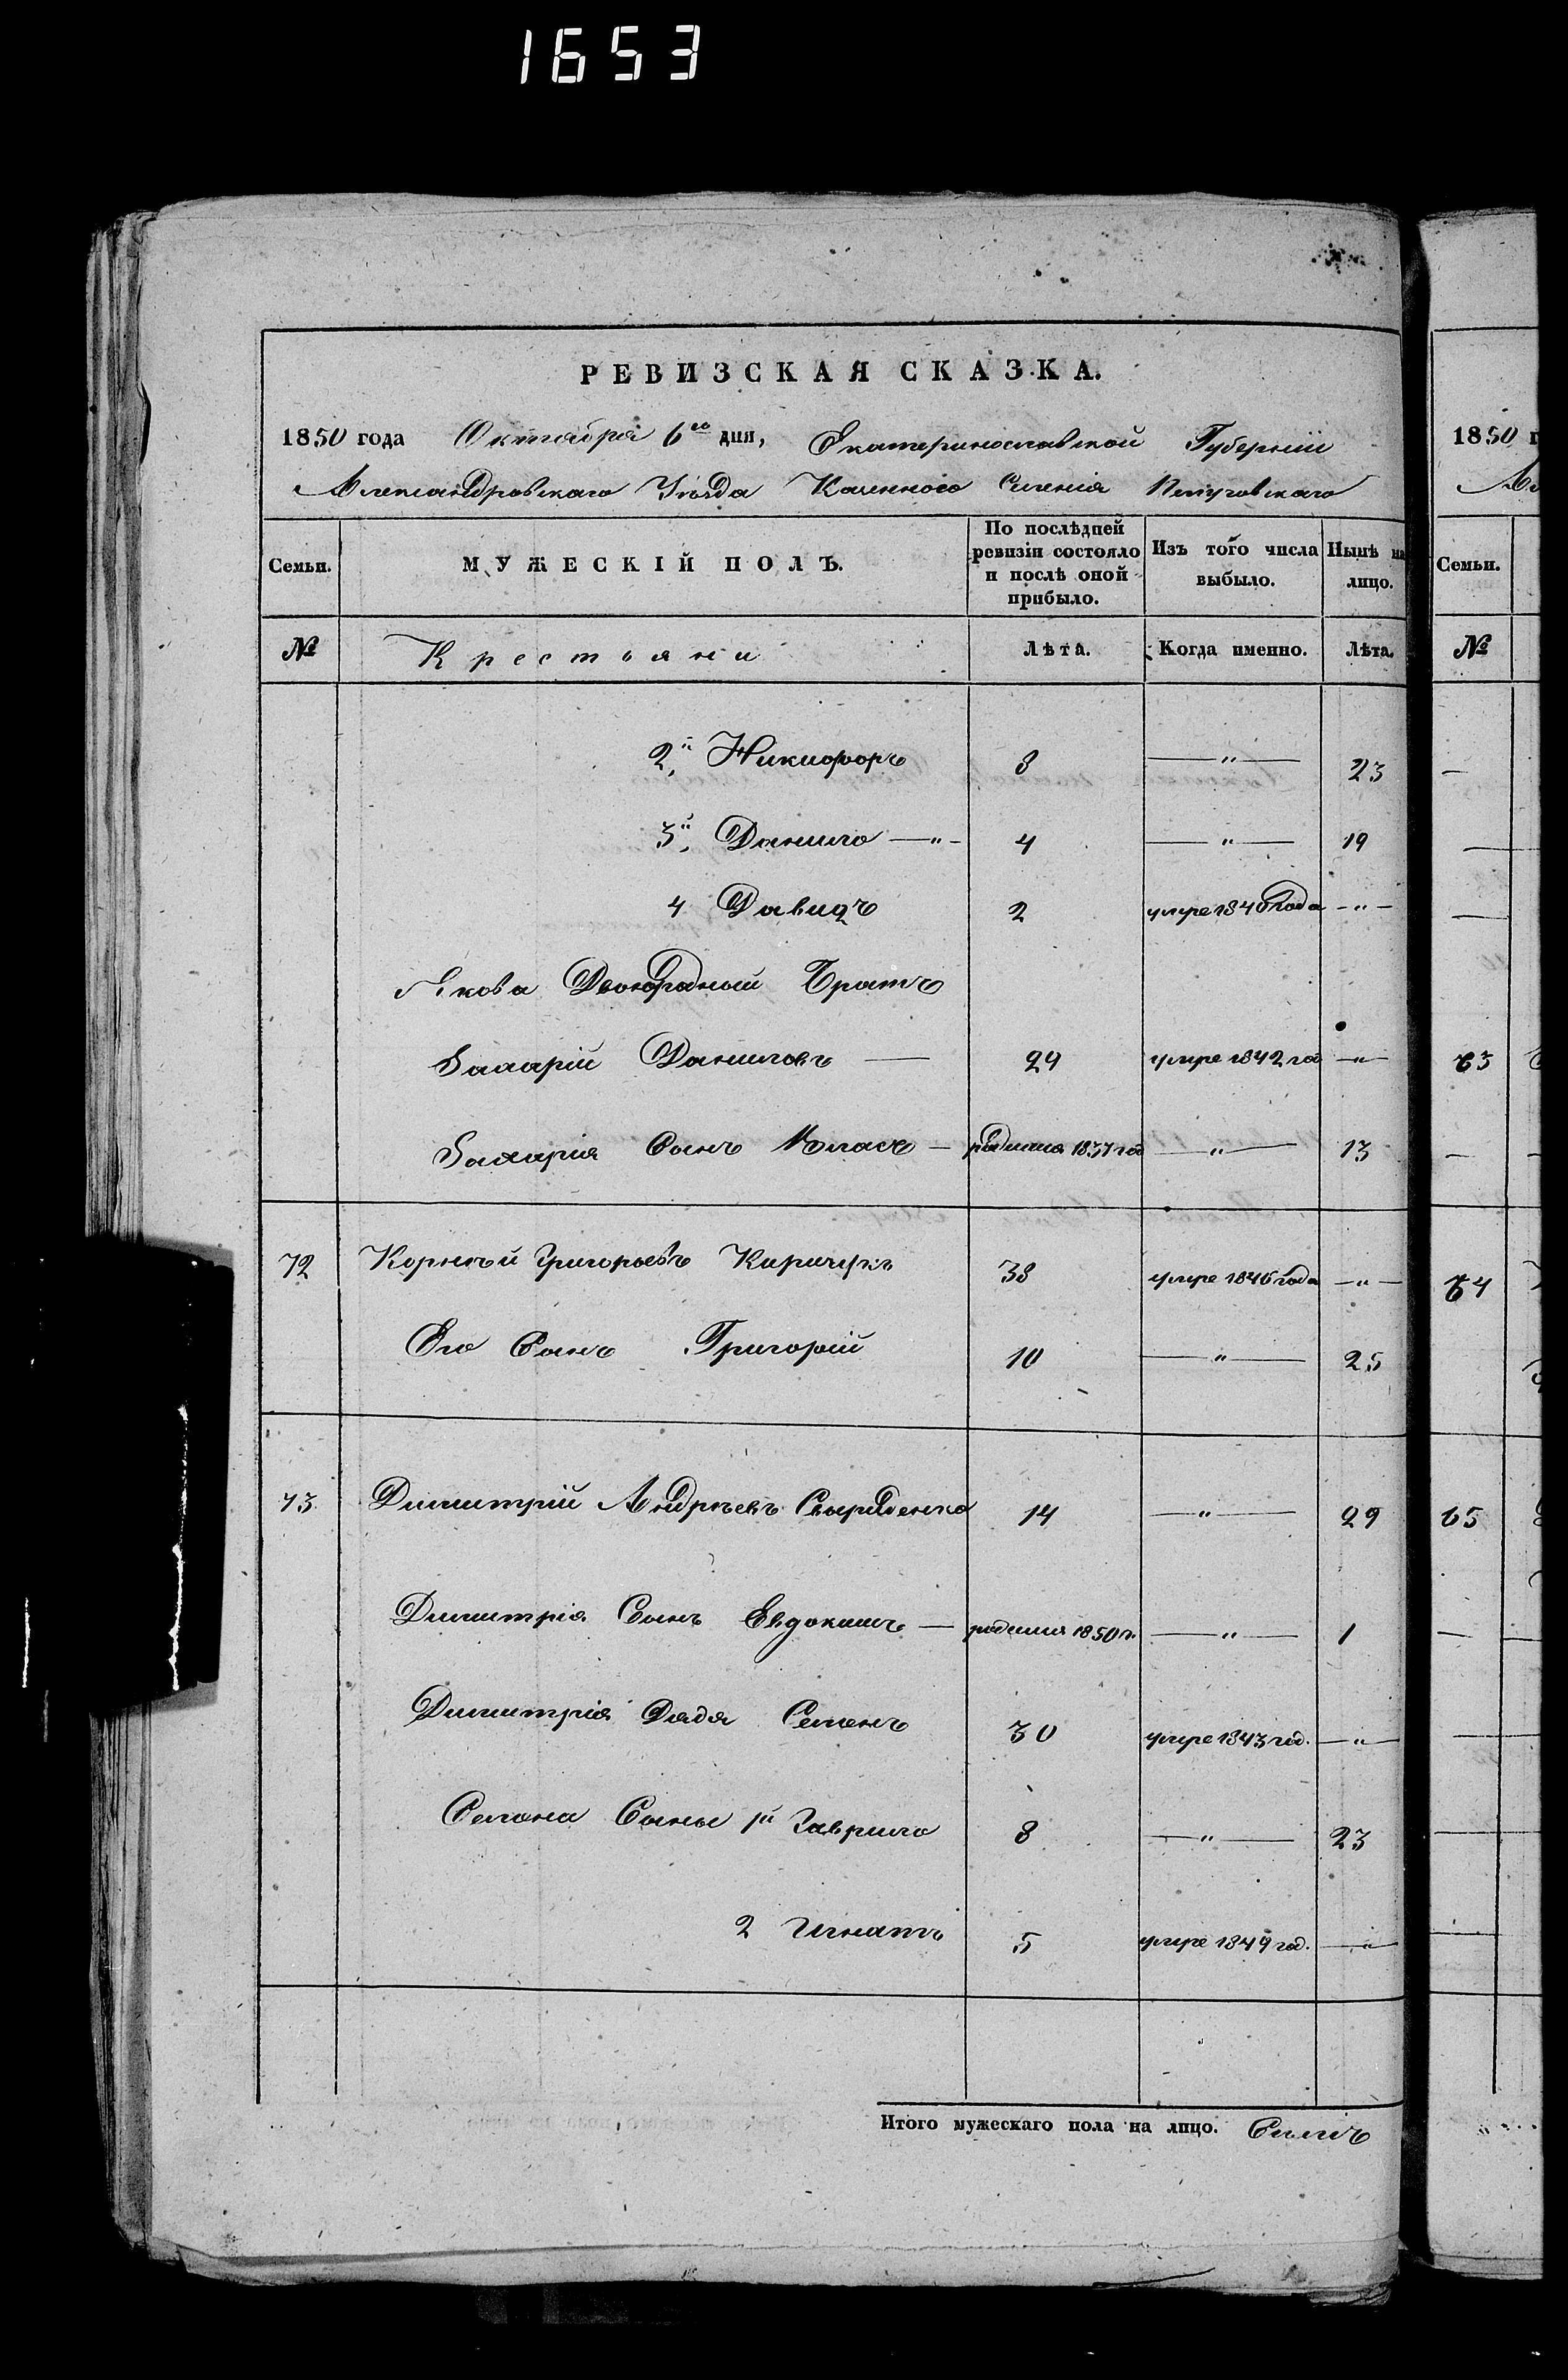 1653
РЕВИЗСКАЯ СКАЗКА.
1850 года Октября 6го дня, Екатеринославской Губернии
Александровскаго Уѣзда Казеннаго Селенія
Семьи. МУЖЕСКІЙ ПОЛЪ. По послѣдней ревизіи состояло и послѣ оной прибыло. Изъ того числа выбыло. Нынѣ на лицо.
№ Крестьяни Лѣта. Когда именно. Лѣта.
2й Никифоръ 8 —"— 23
3й Данило —"— 4 —"— 19
4 Давидъ 2 умре 1840 года —"—
Якова Двоюродный Братъ
Захарій Даниловъ — 29 умре 1842 год —"—
Захарія Сынъ Власъ — родился 1837 год —"— 13
72 Корнѣй Григорьевъ Киричукъ 38 умре 1846 года —"—
Его Сынъ Григорій 10 —"— 25
73 Димитрій Андрѣевъ Свириденко 14 —"— 29
Димитрія Сынъ Евдокимъ — родился 1850 г. —"— 1
Димитрія Дядя Семенъ 30 умре 1843 год. —"—
Семена Сыны 1й Гаврило 8 —"— 23
2 Игнатъ 5 умре 1849 год. —"—
Итого мужескаго пола на лицо. Семь
1850 г
Ал
Семьи.
№
63
64
65